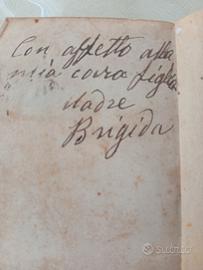 Con affetto alla
mia cara figlia
Madre
Brigida
subito